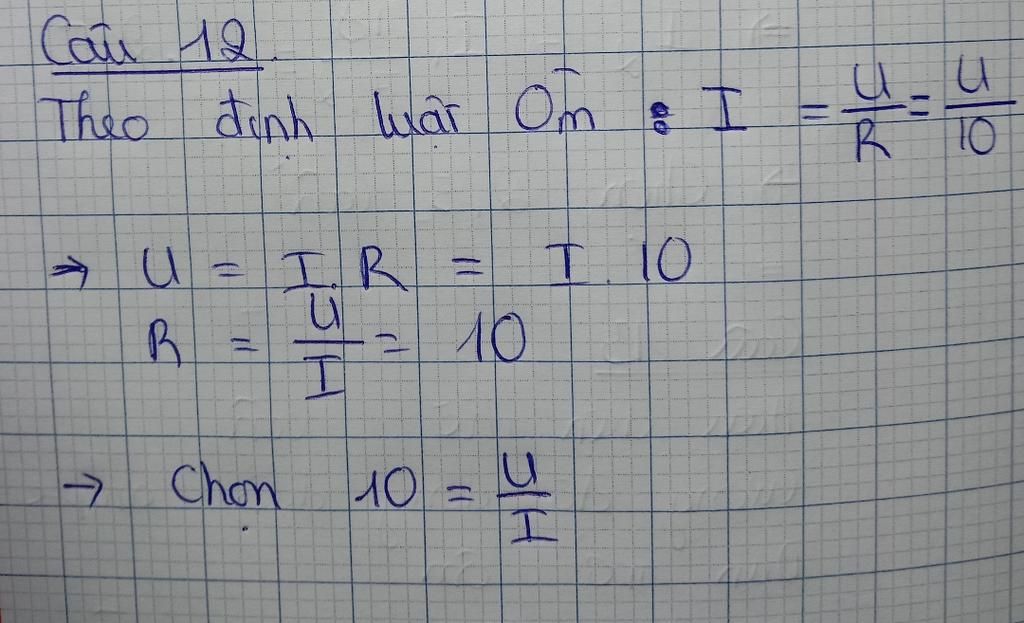 Câu 12.
Theo định luật Ôm : I = U/R = U/10
→ U = I.R = I.10
R = U/I = 10
→ Chọn 10 = U/I